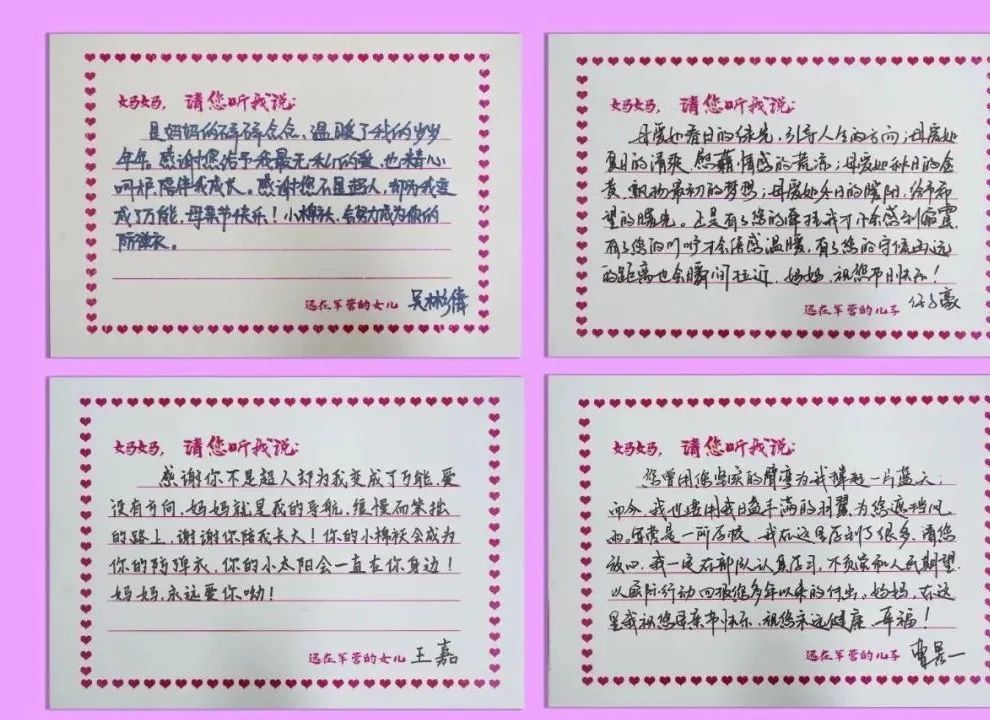 妈妈，请您听我说:
是妈妈的碎碎念念，温暖了我的岁岁
年年。感谢您给予我最无私的爱，也精心
呵护陪伴我成长。感谢您不是超人，却为我变
成了万能，母亲节快乐！小棉袄，会努力成为您的
防弹衣。
远在军营的女儿 吴彬倩
妈妈，请您听我说:
母爱如春日的绿光，引导人生的方向；母爱如
夏日的清爽，慰藉情感的荒凉；母爱如秋日的金
黄，飘扬最初的梦想；母爱如冬日的暖阳，给予希
望的曙光。正是有了您的牵挂我才不会感到孤寂，
有了您的叮咛才会倍感温暖，有了您的守候幽远
的距离也会瞬间拉近，妈妈，祝您节日快乐！
远在军营的儿子 任子豪
妈妈，请您听我说:
感谢你不是超人却为我变成了万能，爱
没有方向，妈妈就是我的导航，缓慢而笨拙
的路上，谢谢你陪我长大！你的小棉袄会成为
你的防弹衣，你的小太阳会一直在你身边！
妈妈，永远爱你呦！
远在军营的女儿 王嘉
妈妈，请您听我说:
您曾用您坚实的臂弯为我撑起一片蓝天；
而今，我也要用我日益丰满的羽翼为您遮挡风
雨。军营是一所学校，我在这里学到了很多，请您
放心，我一定在部队认真学习，不负党和人民期望，
以实际行动回报您多年以来的付出，妈妈，在这
里我祝您母亲节快乐，祝您永远健康、幸福！
远在军营的儿子 曹景一